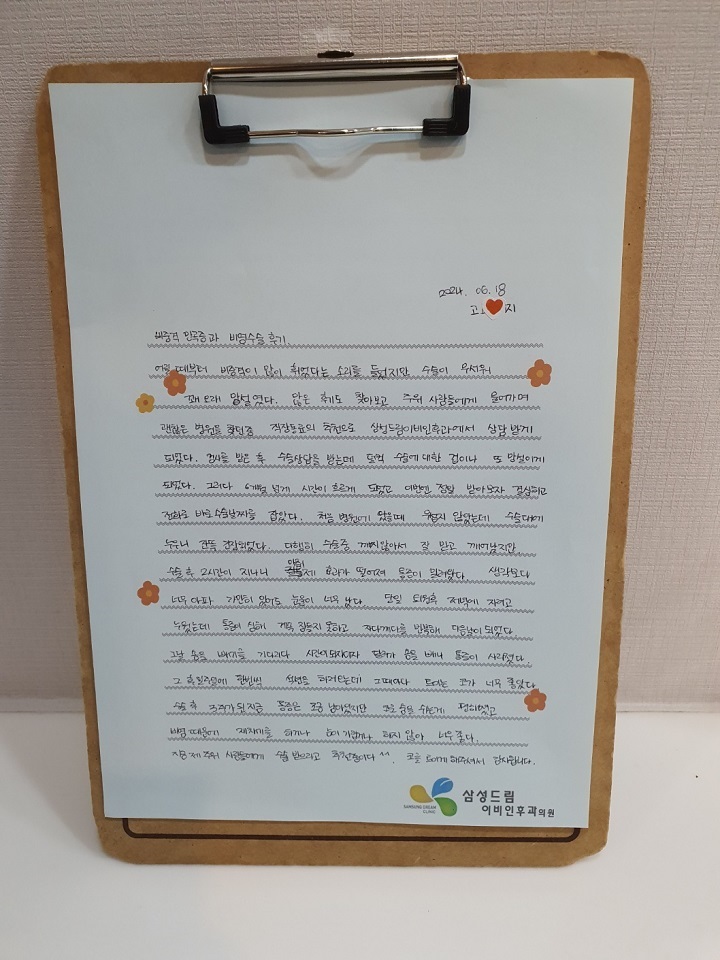 2024. 06. 18
고 지
비중격 만곡증과 비염수술 후기.
어릴 때부터 비중격이 많이 휘었다는 소리를 들었지만 수술이 무서워
꽤 오래 망설였다. 많은 후기도 찾아보고 주위 사람들에게 물어가며
괜찮은 병원을 찾던중 직장동료의 추천으로 삼성드림이비인후과에서 상담 받게
되었다. 검사를 받은 후 수술상담을 받는데 또 수술에 대한 겁이나 또 망설이게
되었다. 그러다 6개월 넘게 시간이 흐르게 되었고 이번엔 정말 받아보자 결심하고
전화로 바로 수술날짜를 잡았다. 처음 병원에 왔을때 무섭지 않았는데 수술대에
누우니 잔뜩 긴장되었다. 다행히 수술중 깨지않아서 잘 받고 깨어났지만
수술 후 2시간이 지나니 마취제 효과가 떨어져 통증이 밀려왔다 생각보다
너무 아파 가만히 있어도 눈물이 너무 났다 당일 퇴원후 저녁에 자려고
누웠는데 통증이 심해 계속 잠들지 못하고 자다깨다를 반복해 다음날이 되었다
그날 솜을 빼기를 기다리다 시간이 되자마자 달려가 솜을 빼니 통증이 사라졌다.
그 후 일주일에 한번씩 치료를 하러오는데 그때마다 트이는 코가 너무 좋았다
수술 후 3주가 된 지금 통증은 조금 남아있지만 코로 숨을 쉬는게 편해졌고
비염 때문에 재채기를 하거나 눈이 가렵거나 하지 않아 너무 좋다.
지금 제 주위 사람들에게 수술 받으라고 추천중이다 ^^. 코를 트이게 해주셔서 감사합니다.
SAMSUNG DREAM
CLINIC
삼성드림
이비인후과의원